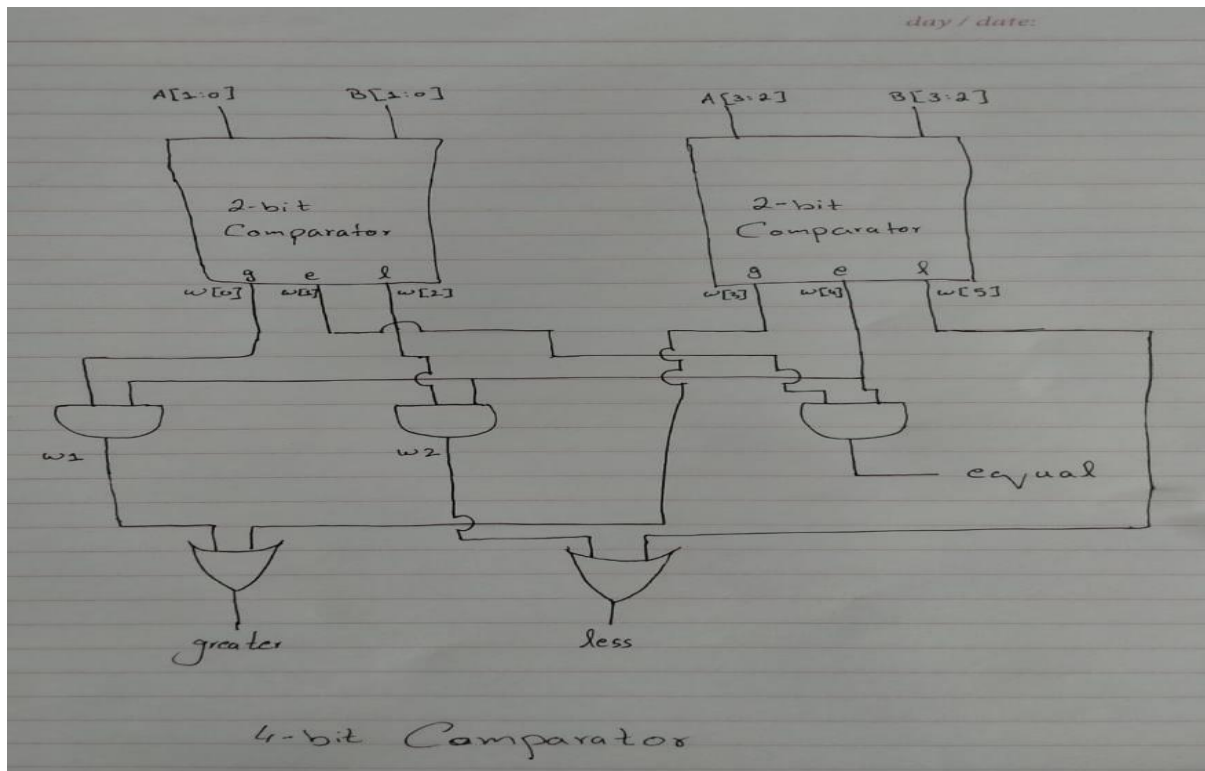 day / date:
A[1:0] B[1:0] A[3:2] B[3:2]
2-bit
Comparator
2-bit
Comparator
g e l
w[0] w[1] w[2]
g e l
w[3] w[4] w[5]
w1
w2
equal
greater
less
4-bit Comparator